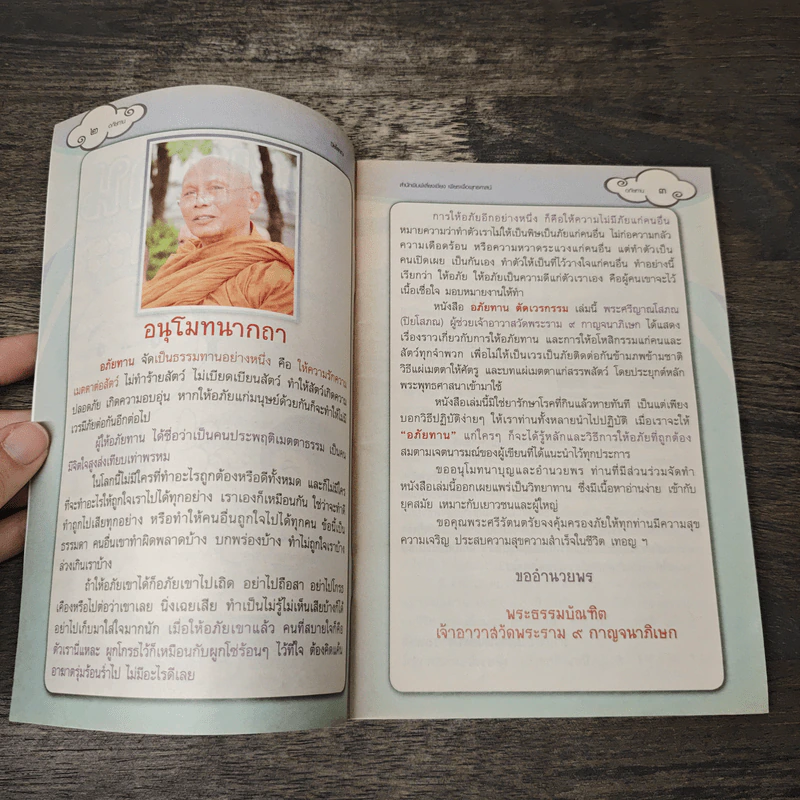 ๒
อภัยทาน
อนุโมทนากถา
อภัยทาน จัดเป็นธรรมทานอย่างหนึ่ง คือ ให้ความรักความ
เมตตาต่อสัตว์ ไม่ทำร้ายสัตว์ ไม่เบียดเบียนสัตว์ ทำให้สัตว์เกิดความ
ปลอดภัย เกิดความอบอุ่น หากให้อภัยแก่มนุษย์ด้วยกันก็จะทำให้ไม่มี
เวรมีภัยต่อกันอีกต่อไป
ผู้ให้อภัยทาน ได้ชื่อว่าเป็นคนประพฤติเมตตาธรรม เป็นคน
มีจิตใจสูงส่งเทียบเท่าพรหม
ในโลกนี้ไม่มีใครที่ทำอะไรถูกต้องหรือดีทั้งหมด และก็ไม่มีใคร
ที่จะทำอะไรให้ถูกใจเราไปได้ทุกอย่าง เราเองก็เหมือนกัน ใช่ว่าจะทำดี
ทำถูกไปเสียทุกอย่าง หรือทำให้คนอื่นถูกใจไปได้ทุกคน ข้อนี้เป็น
ธรรมดา คนอื่นเขาทำผิดพลาดบ้าง บกพร่องบ้าง ทำไม่ถูกใจเราบ้าง
ล่วงเกินเราบ้าง
ถ้าให้อภัยเขาได้ก็อภัยเขาไปเถิด อย่าไปถือสา อย่าไปโกรธ
เคืองหรือไปต่อว่าเขาเลย นิ่งเฉยเสีย ทำเป็นไม่รู้ไม่เห็นเสียบ้างก็ได้
อย่าไปเก็บมาใส่ใจมากนัก เมื่อให้อภัยเขาแล้ว คนที่สบายใจก็คือ
ตัวเรานี่แหละ ผูกโกรธไว้ก็เหมือนกับผูกโซ่ร้อนๆ ไว้ที่ใจ ต้องคิดแค้น
อาฆาตรุ่มร้อนร่ำไป ไม่มีอะไรดีเลย
สำนักพิมพ์เลี่ยงเชียง เพียรเพื่อพุทธศาสน์
อภัยทาน
๓
การให้อภัยอีกอย่างหนึ่ง ก็คือให้ความไม่มีภัยแก่คนอื่น
หมายความว่าทำตัวเราไม่ให้เป็นพิษเป็นภัยแก่คนอื่น ไม่ก่อความกลัว
ความเดือดร้อน หรือความหวาดระแวงแก่คนอื่น แต่ทำตัวเป็น
คนเปิดเผย เป็นกันเอง ทำตัวให้เป็นที่ไว้วางใจแก่คนอื่น ทำอย่างนี้
เรียกว่า ให้อภัย ให้อภัยเป็นความดีแก่ตัวเราเอง คือผู้คนเขาจะไว้
เนื้อเชื่อใจ มอบหมายงานให้ทำ
หนังสือ อภัยทาน ตัดเวรกรรม เล่มนี้ พระศรีญาณโสภณ
(ปิยโสภณ) ผู้ช่วยเจ้าอาวาสวัดพระราม ๙ กาญจนาภิเษก ได้แสดง
เรื่องราวเกี่ยวกับการให้อภัยทาน และการให้อโหสิกรรมแก่คนและ
สัตว์ทุกจำพวก เพื่อไม่ให้เป็นเวรเป็นภัยติดต่อกันข้ามภพข้ามชาติ
วิธีแผ่เมตตาให้ศัตรู และบทแผ่เมตตาแก่สรรพสัตว์ โดยประยุกต์หลัก
พระพุทธศาสนาเข้ามาใช้
หนังสือเล่มนี้มิใช่ยารักษาโรคที่กินแล้วหายทันที เป็นแต่เพียง
บอกวิธีปฏิบัติง่ายๆ ให้เราท่านทั้งหลายนำไปปฏิบัติ เมื่อเราจะให้
“อภัยทาน” แก่ใครๆ ก็จะได้รู้หลักและวิธีการให้อภัยที่ถูกต้อง
สมตามเจตนารมณ์ของผู้เขียนที่ได้แนะนำไว้ทุกประการ
ขออนุโมทนาบุญและอำนวยพร ท่านที่มีส่วนร่วมจัดทำ
หนังสือเล่มนี้ออกเผยแพร่เป็นวิทยาทาน ซึ่งมีเนื้อหาอ่านง่าย เข้ากับ
ยุคสมัย เหมาะกับเยาวชนและผู้ใหญ่
ขอคุณพระศรีรัตนตรัยจงคุ้มครองภัยให้ทุกท่านมีความสุข
ความเจริญ ประสบความสุขความสำเร็จในชีวิต เทอญ ฯ
ขออำนวยพร
พระธรรมบัณฑิต
เจ้าอาวาสวัดพระราม ๙ กาญจนาภิเษก